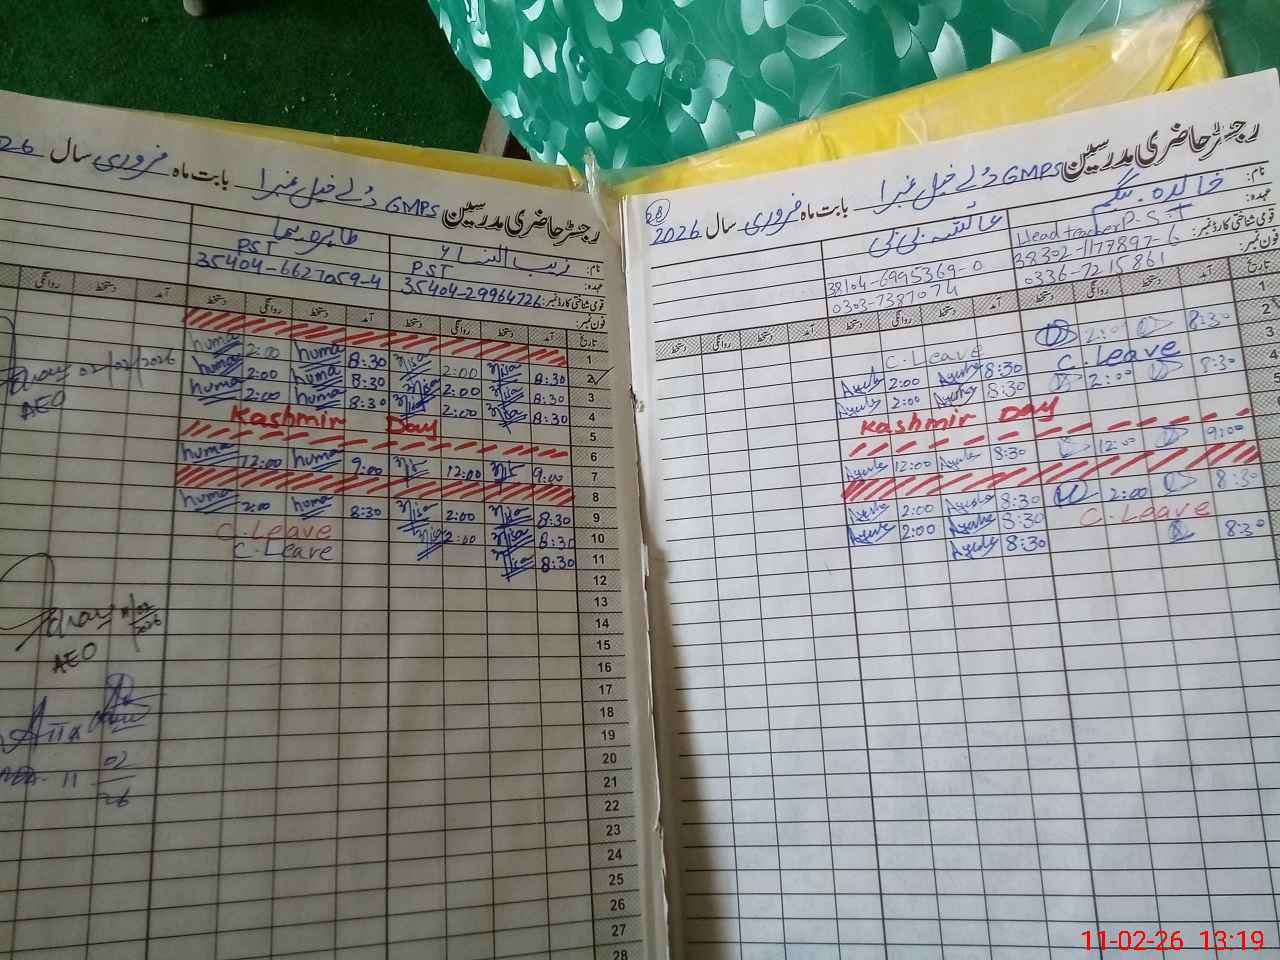 رجسٹر حاضری مدرسین GMPS دُلے خیل نمبر 1 بابت ماہ فروری سال 2026
نام: خالدہ بیگم
عائشہ بی بی
عہدہ: Head teacher P.S.T
قومی شناختی کارڈ نمبر: 38302-1177897-6
38104-6995369-0
فون نمبر: 0336-7215861
0303-7387074
تاریخ آمد دستخط روانگی دستخط آمد دستخط روانگی دستخط آمد دستخط روانگی دستخط
1
2 8:30 2:00 C.Leave
3 C.Leave 8:30 2:00
4 8:30 2:00 8:30 2:00
5 Kashmir Day
9:00 12:00 8:30 12:00
8:30 2:00 8:30 2:00
C.Leave 8:30 2:00
8:30 8:30
رجسٹر حاضری مدرسین GMPS دُلے خیل نمبر 1 بابت ماہ فروری سال 26
نام: زیب النساء
طاہرہ ہما
عہدہ: PST
PST
قومی شناختی کارڈ نمبر: 35404-29964726
35404-6627059-4
فون نمبر:
تاریخ آمد دستخط روانگی دستخط آمد دستخط روانگی دستخط آمد دستخط روانگی
1
2 8:30 Nisa 2:00 Nisa 8:30 huma 2:00 huma
3 8:30 Nisa 2:00 Nisa 8:30 huma 2:00 huma
4 8:30 Nisa 2:00 Nisa 8:30 huma 2:00 huma
5 Kashmir Day
6
7 9:00 Nisa 12:00 Nisa 9:00 huma 12:00 huma
8
9 8:30 Nisa 2:00 Nisa 8:30 huma 2:00 huma
10 8:30 Nisa 2:00 Nisa C.Leave
11 8:30 Nisa C.Leave
12
13
14
15
16
17
18
19
20
21
22
23
24
25
26
27
28
02/02/2026
AEO
11/02/2026
AEO
11-02-26 13:19